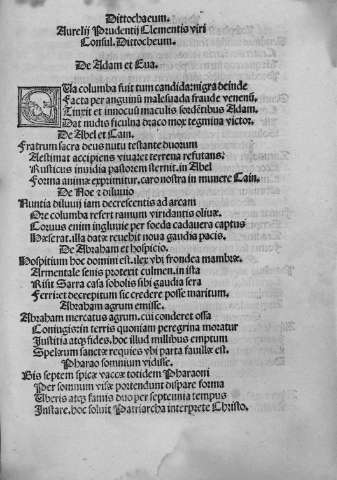 Dittochaeum.
Aurelij Prudentij Clementis viri
Consul. Dittocheum.
De Adam et Eua.
EUa columba fuit tum candida: nigra deinde
Facta per anguinũ malesuada fraude venenũ.
Tinxit et innocuũ maculis sordẽtibus Adam,
Dat nudis ficulna draco mox tegmina victor.
De Abel et Cain.
Fratrum sacra deus nutu testante duorum
Aestimat accipiens viua: et terrena refutans.
Rusticus inuidia pastorem sternit. in Abel
Forma animæ exprimitur. caro nostra in munere Cain.
De Noe ⁊ diluuio
Nuntia diluuij iam decrescentis ad arcam
Ore columba refert ramum viridantis oliuæ.
Coruus enim ingluuie per foeda cadauera captus
Hæserat. illa datæ reuehit noua gaudia pacis.
De Abraham et hospicio.
Hospitium hoc domini est. ilex vbi frondea mambræ.
Armentale senis protexit culmen. in ista
Risit Sarra casa sobolis sibi gaudia sera
Ferri: et decrepitum sic credere posse maritum.
Abraham agrum emisse.
Abraham mercatus agrum. cui conderet ossa
Coniugis: in terris quoniam peregrina moratur
Iustitia atqȝ fides. hoc illud millibus emptum
Spelæum sanctæ requies vbi parta fauillæ est.
Pharao somnium vidisse.
Bis septem spicæ vaccæ totidem Pharaoni
Per somnium visæ portendunt dispare forma
Uberis atqȝ famis duo per septennia tempus
Instare. hoc soluit Patriarcha interprete Christo.